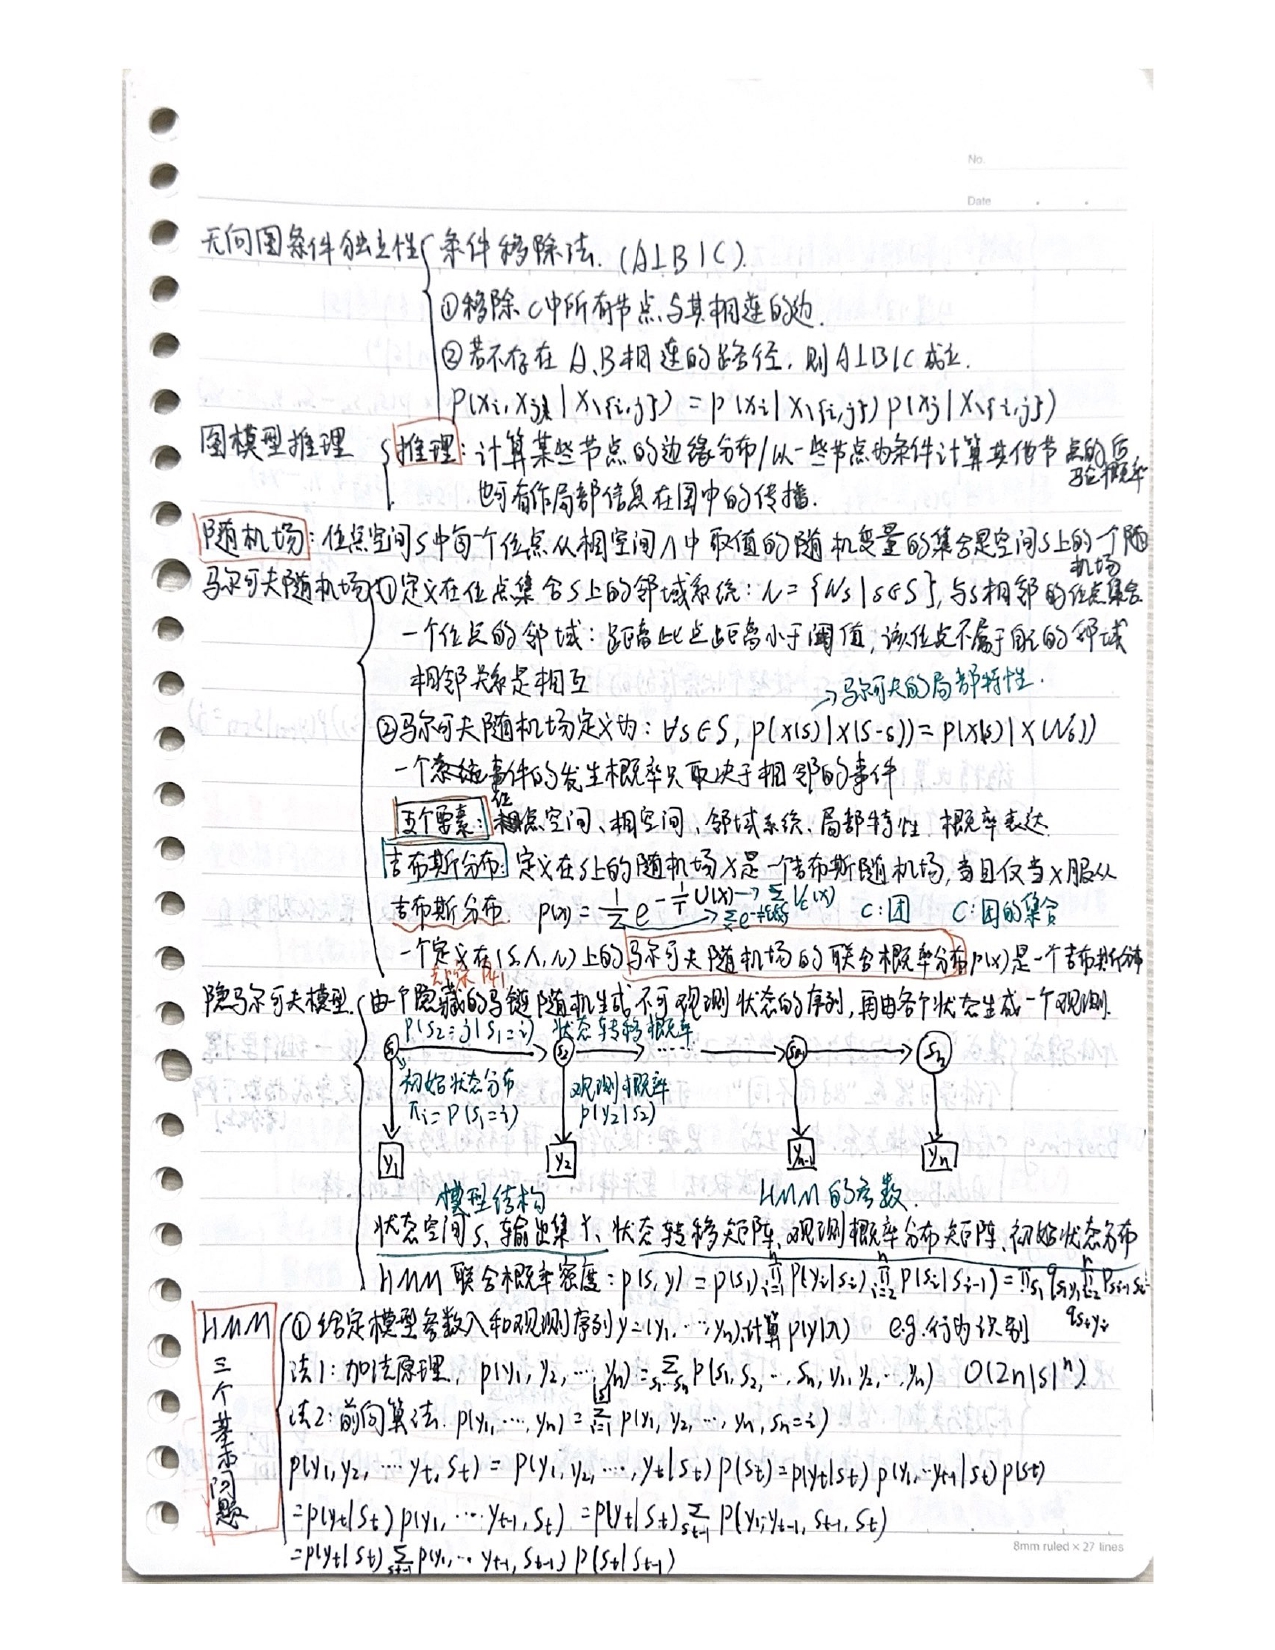 No.
Date
无向图条件独立性 { 条件移除法. (A⊥B|C).
①移除C中所有节点与其相连的边.
②若不存在A、B相连的路径, 则A⊥B|C成立.
p(xi, xj | x\{i,j}) = p(xi | x\{i,j}) p(xj | x\{i,j})
图模型推理 { 推理: 计算某些节点的边缘分布/以一些节点为条件计算其他节点的后验概率
也可看作局部信息在图中的传播.
随机场: 位点空间S中每个位点从相空间Λ中取值的随机变量的集合是空间S上的一个随机场
马尔可夫随机场 { ①定义在位点集合S上的邻域系统: N = {Ns | s∈S}, 与s相邻的位点集合
一个位点的邻域: 距离此点距离小于阈值, 该位点不属于自己的邻域
相邻关系是相互
→马尔可夫的局部特性.
②马尔可夫随机场定义为: ∀s∈S, p(x(s)|x(S-s)) = p(x(s)|x(Ns))
一个事件的发生概率只取决于相邻的事件
五个要素: 位点空间、相空间、邻域系统、局部特性、概率表达
吉布斯分布: 定义在S上的随机场X是一个吉布斯随机场, 当且仅当X服从
吉布斯分布. p(x) = 1/Z e^{-1/T U(x)} → Σ Vc(x) c:团 C:团的集合
一个定义在(S,Λ,N)上的马尔可夫随机场的联合概率分布p(x)是一个吉布斯分布
隐马尔可夫模型 { 由一个隐藏的马链随机生成不可观测状态的序列, 再由各个状态生成一个观测.
p(s2=j|s1=i) 状态转移概率
s1 s2 ...... sn-1 sn
初始状态分布 观测概率
πi=p(s1=i) p(y2|s2)
y1 y2 yn-1 yn
模型结构 HMM的参数.
状态空间S、输出集Y、状态转移矩阵、观测概率分布矩阵、初始状态分布
HMM 联合概率密度: p(s, y) = p(s1) ∏_{i=1}^{n} p(yi|si) ∏_{i=2}^{n} p(si|si-1) = πs1 qs1y1 ∏_{i=2}^{n} Psi-1si qsiyi
HMM三个基本问题 { ①给定模型参数λ和观测序列y=(y1, ..., yn), 计算p(y|λ) e.g.行为识别
法1: 加法原理, p(y1, y2, ..., yn) = Σ_{s1...sn} p(s1, s2, ..., sn, y1, y2, ..., yn) O(2n|s|^n)
法2: 前向算法. p(y1, ..., yn) = Σ_{i=1}^{|s|} p(y1, y2, ..., yn, sn=i)
p(y1, y2, ... yt, st) = p(y1, y2, ..., yt|st) p(st) = p(yt|st) p(y1, ...yt-1|st) p(st)
= p(yt|st) p(y1, ... yt-1, st) = p(yt|st) Σ_{st-1} p(y1, yt-1, st-1, st)
= p(yt|st) Σ_{st-1} p(y1, ... yt-1, st-1) p(st|st-1)
8mm ruled × 27 lines